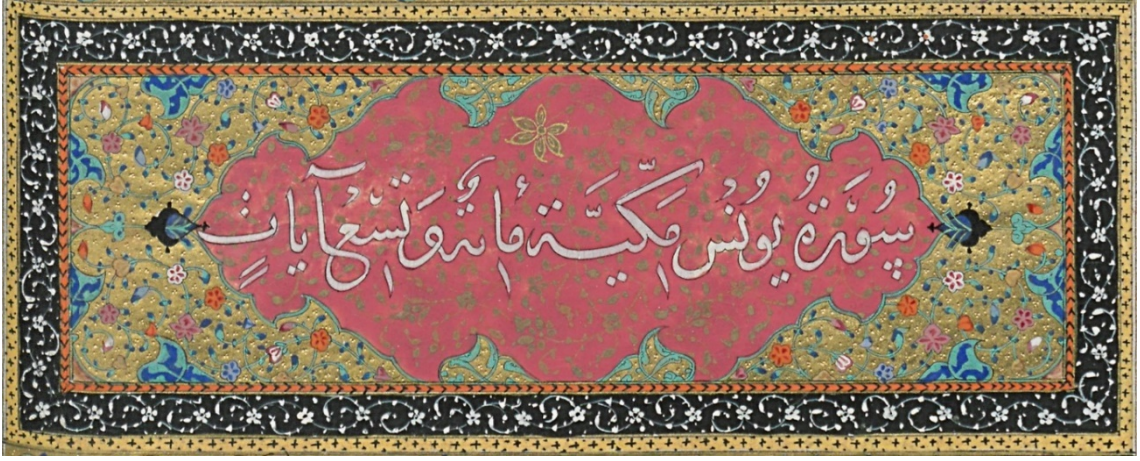 سُورَةُ يُونُسْ مَكِّيَّة مأىة وَتِسْعُ آيَاتٍ